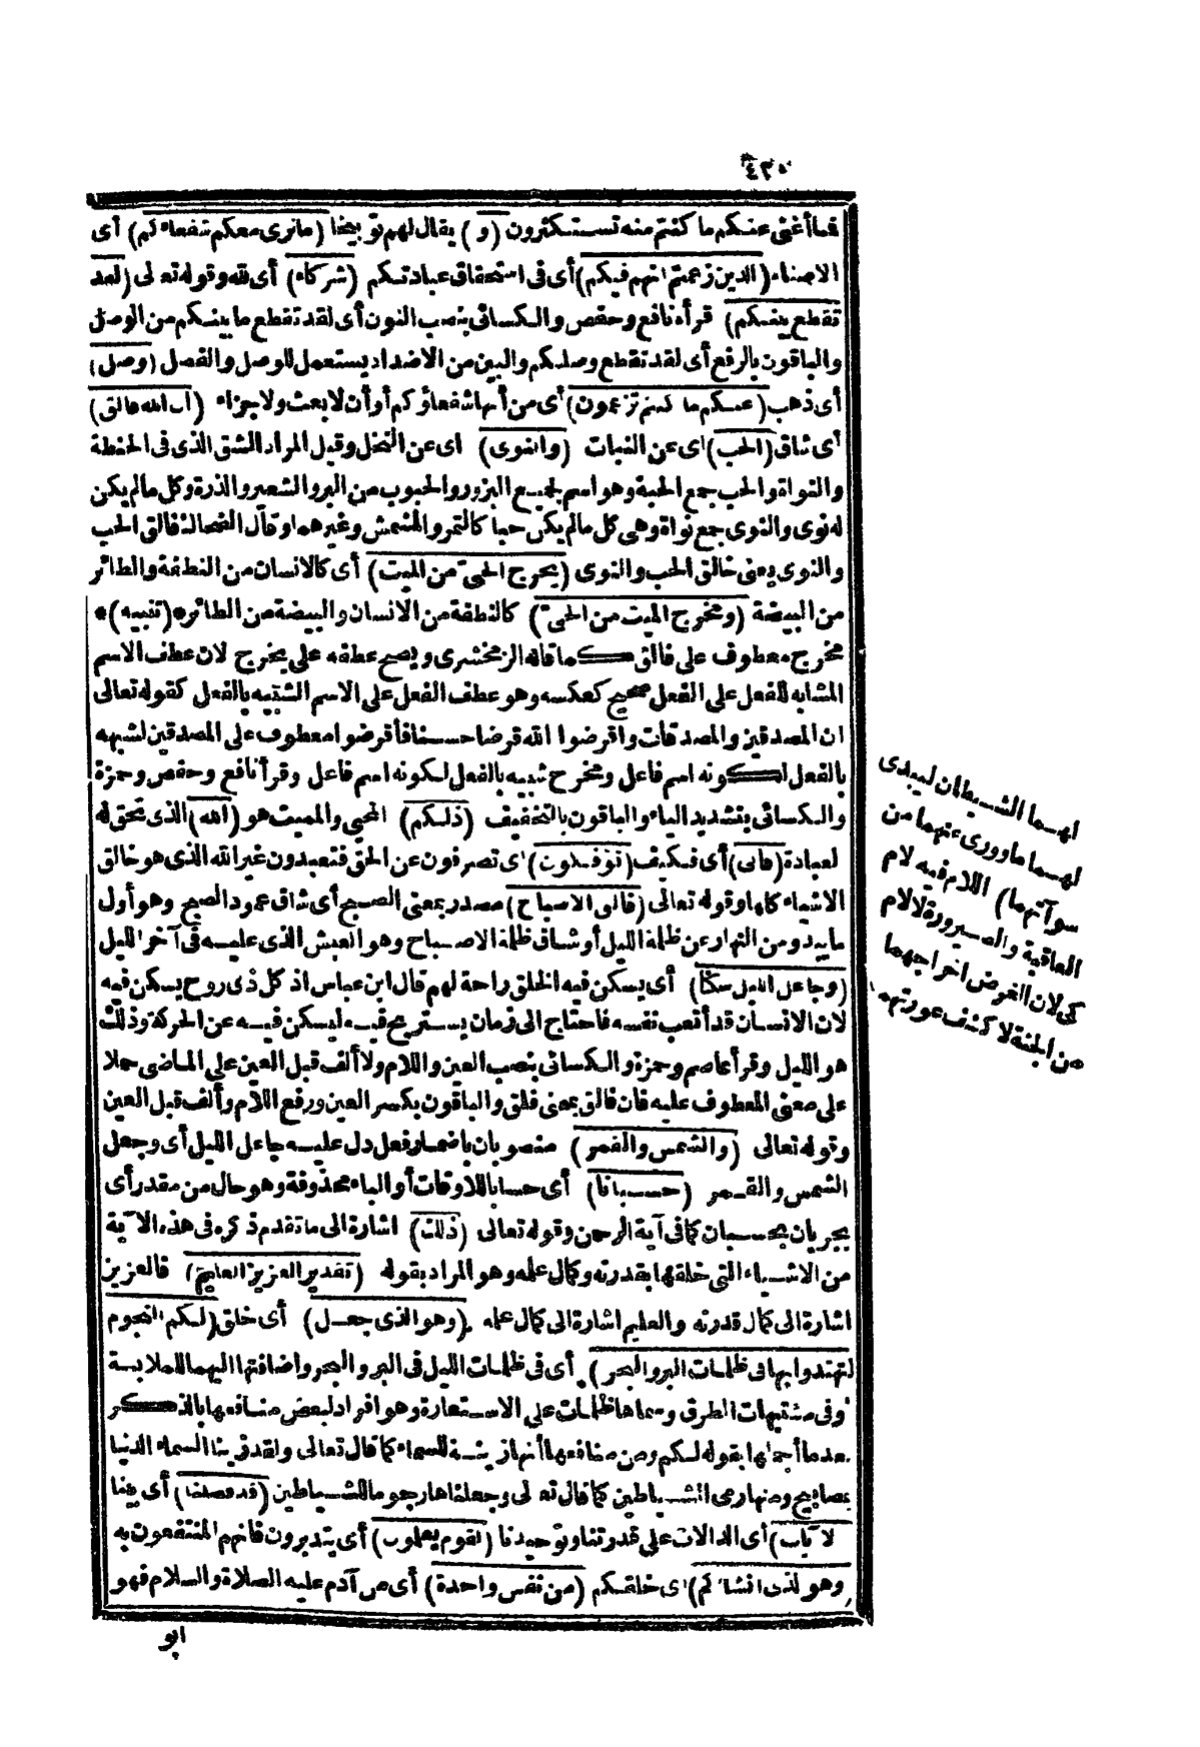 ٤٣٠
فما أغنى عنكم ما كنتم منه تستكثرون (و) يقال لهم توبيخا (ما نرى معكم شفعاءكم) أى
الاصنام (الذين زعمتم انهم فيكم) أى فى استحقاق عبادتكم (شركاء) أى لله وقوله تعالى (لقد
تقطع بينكم) قرأه نافع وحفص والكسائى بنصب النون أى لقد تقطع ما بينكم من الوصل
والباقون بالرفع أى لقد تقطع وصلكم والبين من الاضداد يستعمل للوصل والفصل (وضل)
أى ذهب (عنكم ما كنتم تزعمون) أى من أنها شفعاؤكم أو أن لا بعث ولا جزاء (ان الله فالق)
أى شاق (الحب) اى عن النبات (والنوى) اى عن النخل وقيل المراد الشق الذى فى الحنطة
والنواة والحب جمع الحبة وهو اسم لجميع البزور والحبوب من البر والشعير والذرة وكل ما لم يكن
له نوى والنوى جمع نواة وهى كل ما لم يكن حبا كالتمر والمشمش وغيرهما وقال الضحاك فالق الحب
والنوى يعنى خالق الحب والنوى (يخرج الحى من الميت) أى كالانسان من النطفة والطائر
من البيضة (ومخرج الميت من الحى) كالنطفة من الانسان والبيضة من الطائر *(تنبيه)*
مخرج معطوف على فالق كما قاله الزمخشرى ويصح عطفه على يخرج لان عطف الاسم
المشابه للفعل على الفعل صحيح كعكسه وهو عطف الفعل على الاسم الشبيه بالفعل كقوله تعالى
ان المصدقين والمصدقات واقرضوا الله قرضا حسنا فأقرضوا معطوف على المصدقين لشبهه
بالفعل لكونه اسم فاعل ومخرج شبيه بالفعل لكونه اسم فاعل وقرأ نافع وحفص وحمزة
والكسائى بتشديد الياء والباقون بالتخفيف (ذلكم) المحيى والمميت هو (الله) الذى تحق له
العبادة (فانى) أى فكيف (تؤفكون) اى تصرفون عن الحق فتعبدون غير الله الذى هو خالق
الاشياء كلها وقوله تعالى (فالق الاصباح) مصدر بمعنى الصبح أى شاق عمود الصبح وهو أول
ما يبدو من النهار عن ظلمة الليل أو شاق ظلمة الاصباح وهو الغبش الذى عليه فى آخر الليل
(وجاعل الليل سكنا) أى يسكن فيه الخلق راحة لهم قال ابن عباس اذ كل ذى روح يسكن فيه
لان الانسان قد أتعب نفسه فاحتاج الى زمان يستريح فيه ليسكن فيه عن الحركة وذلك
هو الليل وقرأ عاصم وحمزة والكسائى بنصب العين واللام ولا ألف قبل العين على الماضى حملا
على معنى المعطوف عليه فان فالق بمعنى فلق والباقون بكسر العين ورفع اللام وألف قبل العين
وقوله تعالى (والشمس والقمر) منصوبان باضمار فعل دل عليه جاعل الليل أى وجعل
الشمس والقمر (حسبانا) أى حسابا للاوقات أو الباء محذوفة وهو حال من مقدر أى
يجريان بحسبان كما فى آية الرحمن وقوله تعالى (ذلك) اشارة الى ما تقدم ذكره فى هذه الآية
من الاشياء التى خلقها بقدرته وكمال علمه وهو المراد بقوله (تقدير العزيز العليم) فالعزيز
اشارة الى كمال قدرته والعليم اشارة الى كمال علمه (وهو الذى جعل) أى خلق (لكم النجوم
لتهتدوا بها فى ظلمات البر والبحر) أى فى ظلمات الليل فى البر والبحر واضافتها اليهما للملابسة
أو فى مشتبهات الطرق وسماها ظلمات على الاستعارة وهو افراد لبعض منافعها بالذكر
بعد ما أجملها بقوله لكم ومن منافعها أنها زينة للسماء كما قال تعالى ولقد زينا السماء الدنيا
بمصابيح ومنها رمى الشياطين كما قال تعالى وجعلناها رجوما للشياطين (قد فصلنا) أى بينا
(الآيات) أى الدالات على قدرتنا وتوحيدنا (لقوم يعلمون) أى يتدبرون فانهم المنتفعون به
(وهو الذى انشأكم) اى خلقكم (من نفس واحدة) أى من آدم عليه الصلاة والسلام فهو
ابو
لهما الشيطان ليبدى
لهما ما وورى عنهما من
سوآتهما) اللام فيه لام
العاقبة والصيرورة لا لام
كى لان الغرض اخراجهما
من الجنة لا كشف عورتهما